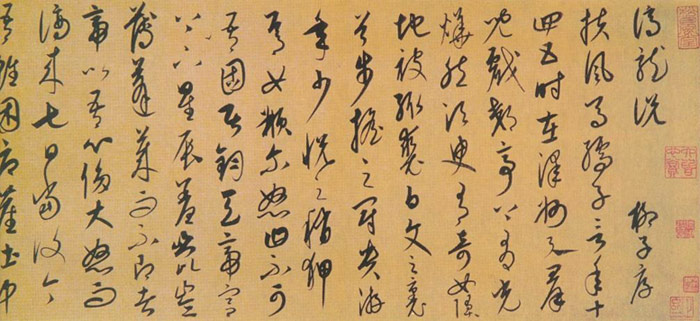 謫龍說 柳子厚
扶風馬孺子言年十
四五時在澤州與群
兒戲郊亭上有光
燁然須臾有奇女墜
地被緅裘白文之裏
首步搖之冠貴游
年少悅之稍狎
焉女頩爾怒曰不可
吾固居鈞天帝宮
下上星辰羞崑崙
薄蓬萊而不即者
帝以吾心侈大怒而
謫來七日當復今
吾雖困辱塵土中